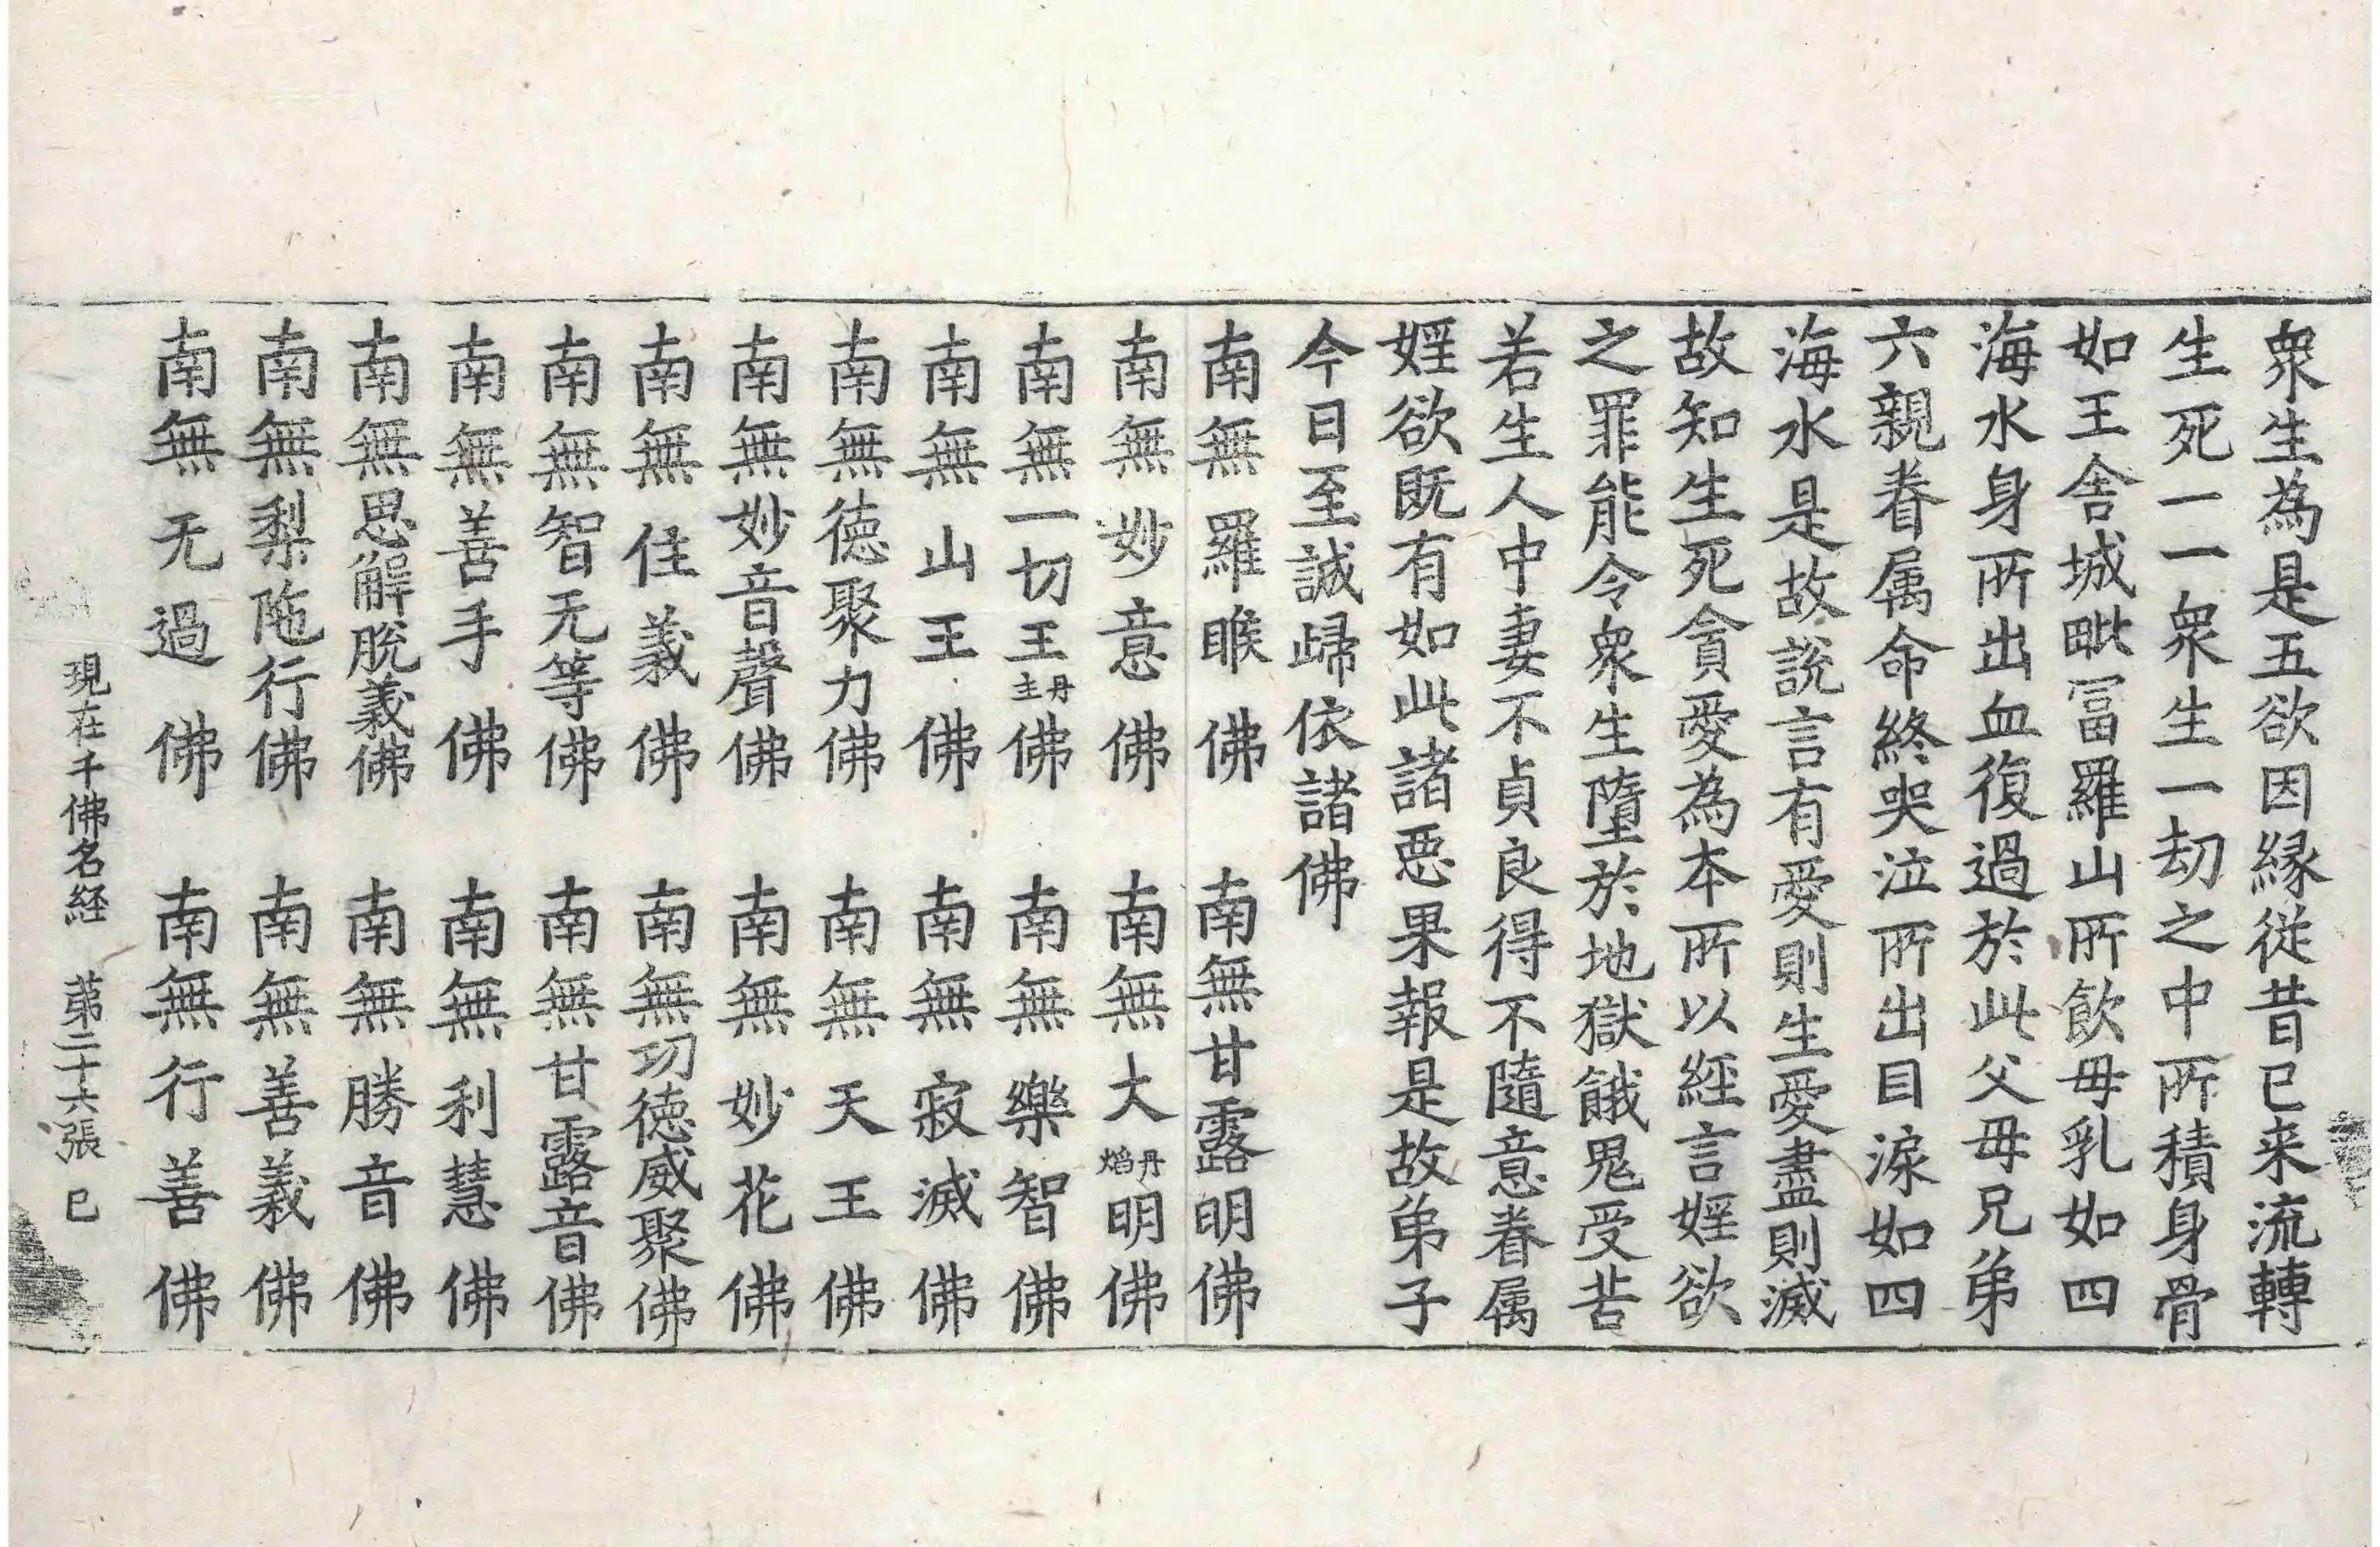 衆生為是五欲因緣從昔已来流轉
生死一一衆生一劫之中所積身骨
如王舍城毗冨羅山所飲母乳如四
海水身所出血復過於此父母兄弟
六親眷属命終哭泣所出目淚如四
海水是故說言有愛則生愛盡則滅
故知生死貪愛為本所以経言婬欲
之罪能令衆生墮於地獄餓鬼受苦
若生人中妻不貞良得不隨意眷属
婬欲既有如此諸惡果報是故弟子
今日至誠歸依諸佛
南無羅睺佛　南無甘露明佛
南無妙意佛　南無大丹焰明佛
南無一切王丹主佛　南無樂智佛
南無山王佛　南無寂滅佛
南無德聚力佛　南無天王佛
南無妙音聲佛　南無妙花佛
南無住義佛　南無功德威聚佛
南無智无等佛　南無甘露音佛
南無善手佛　南無利慧佛
南無思解脫義佛　南無勝音佛
南無梨陁行佛　南無善義佛
南無无過佛　南無行善佛
現在千佛名経　苐二十六張　巳